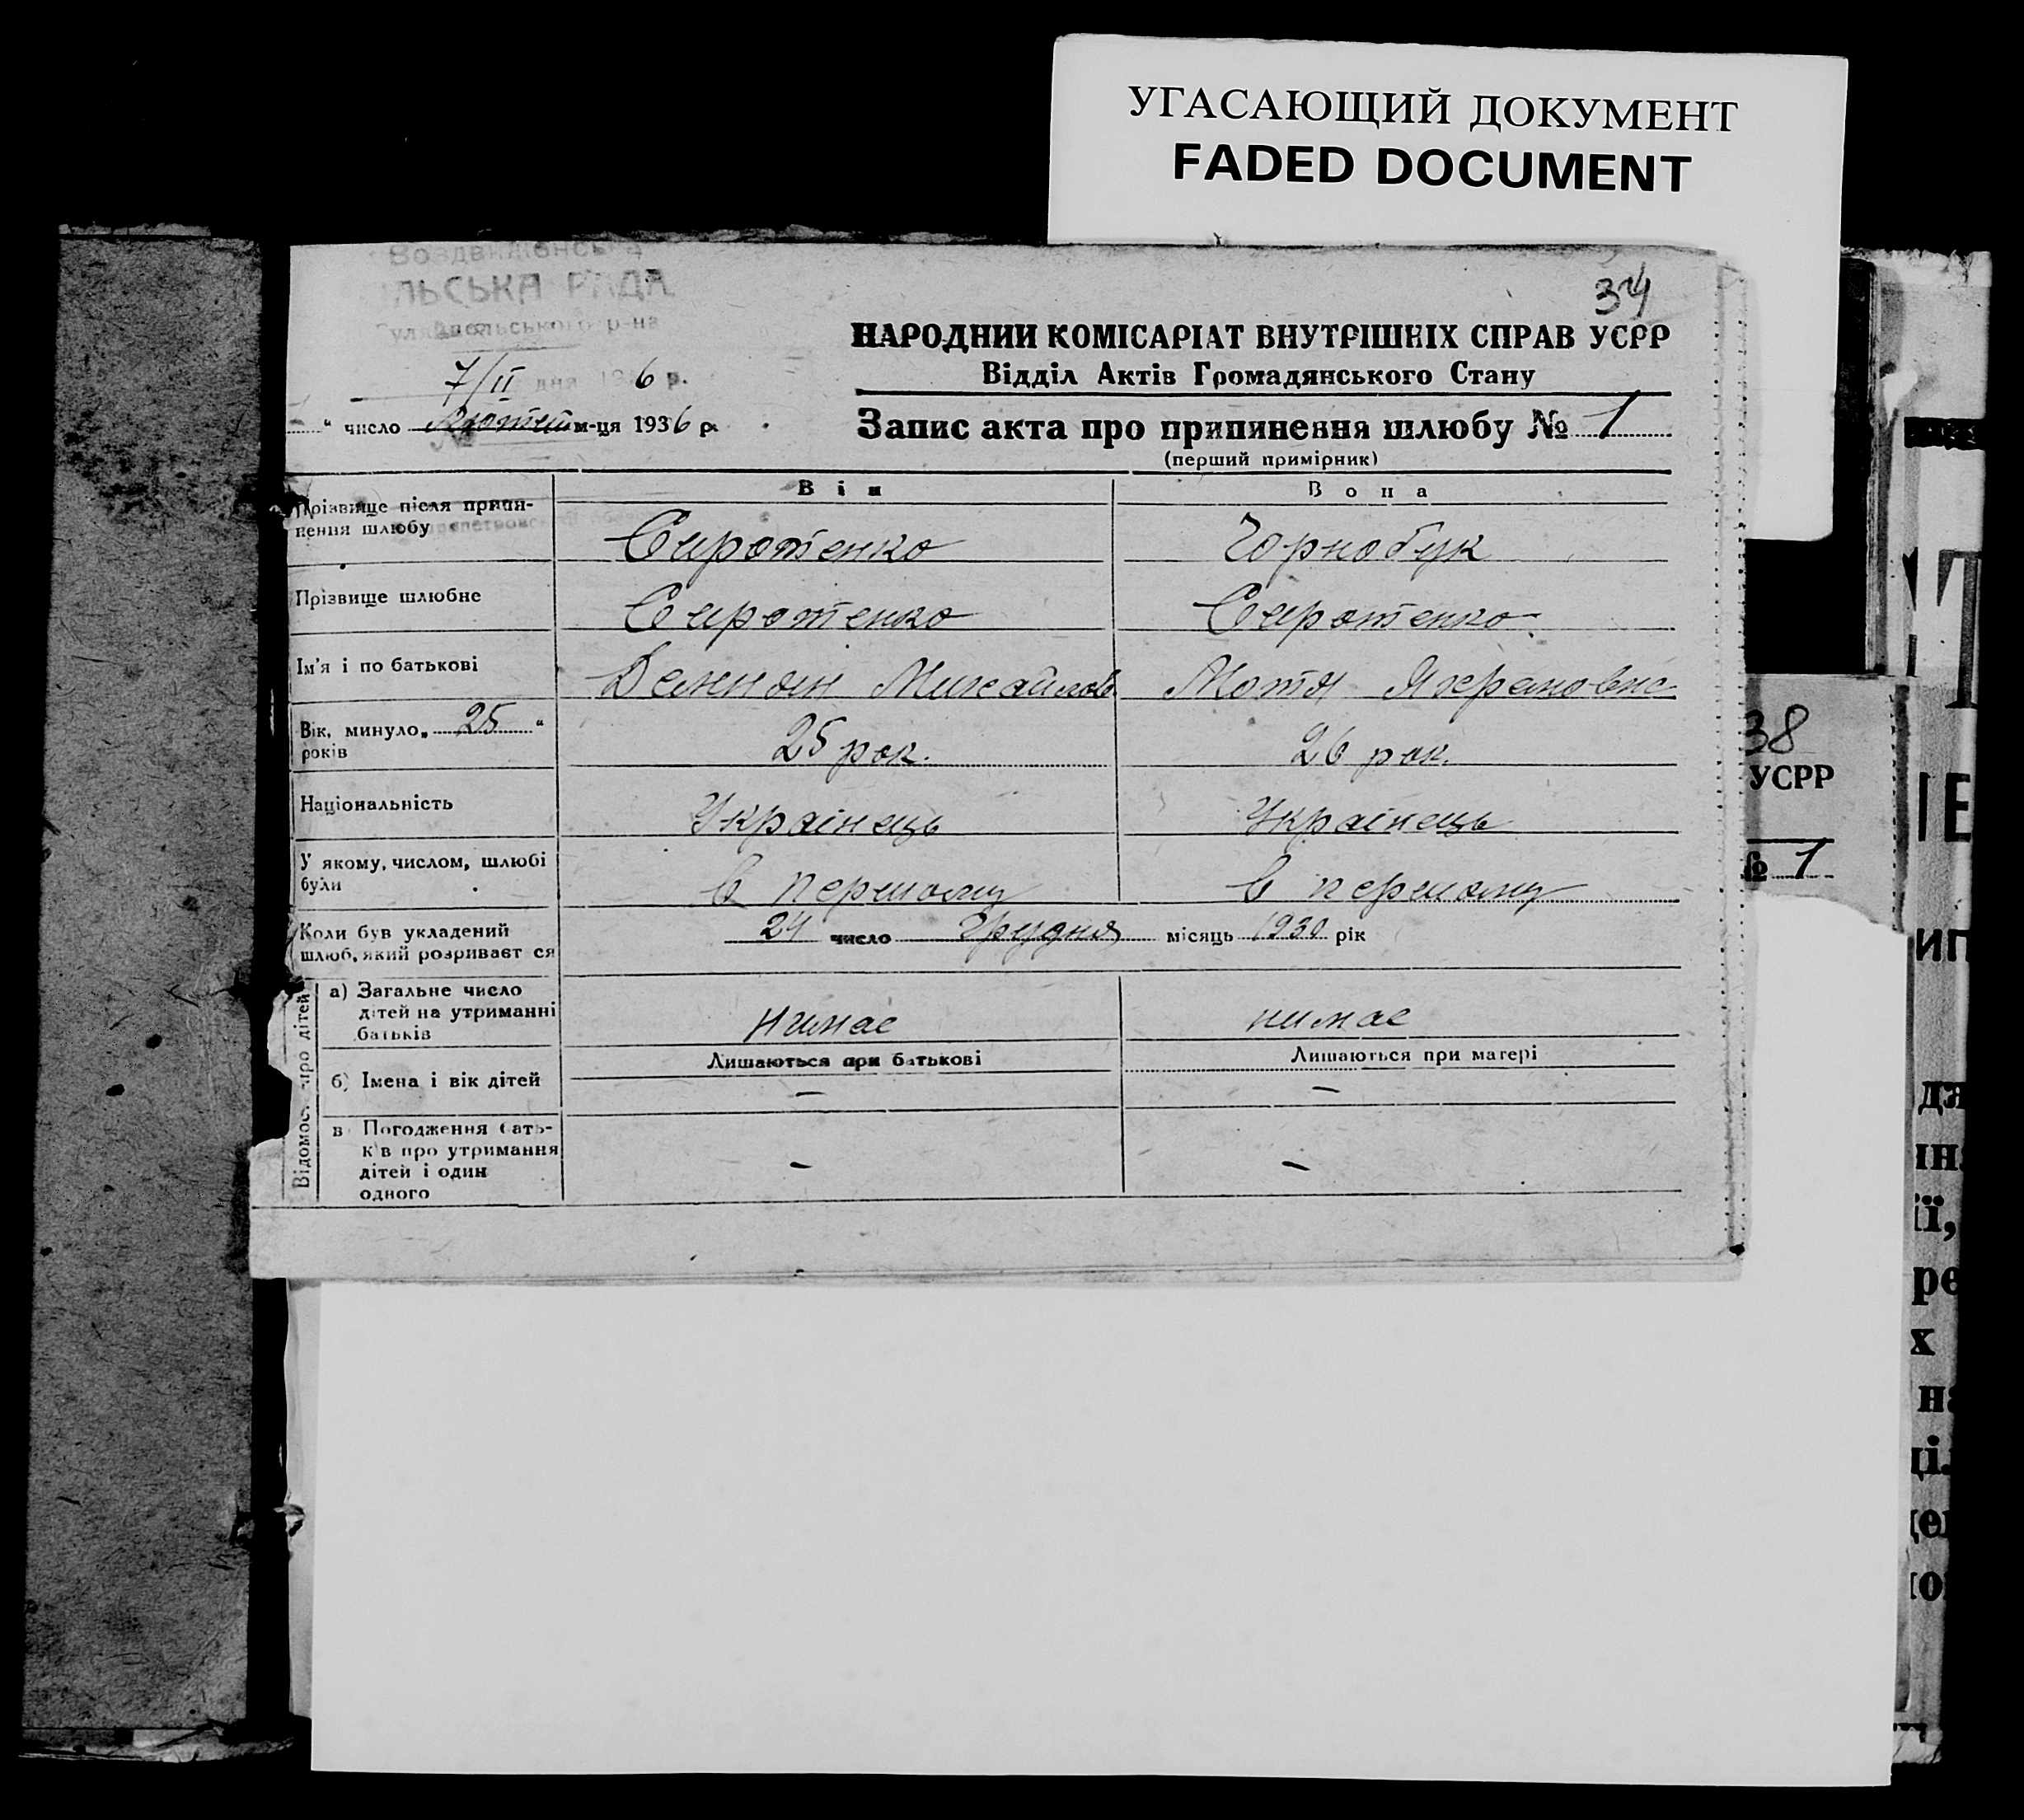 УГАСАЮЩИЙ ДОКУМЕНТ
FADED DOCUMENT
Воздвиженська
ІЛЬСЬКА РАДА
Гуляйпольського р-на
7/II дня 1936 р.
34
НАРОДНИЙ КОМІСАРІАТ ВНУТРІШНІХ СПРАВ УСРР
Відділ Актів Громадянського Стану
" число м-ця 1936 р.
Запис акта про припинення шлюбу № 1
(перший примірник)
Він Вона
Прізвище після припинення шлюбу Сиротенко Чорнобук
Прізвище шлюбне Сиротенко Сиротенко
Ім'я і по батькові Михайлов Мотя
Вік, минуло „ 25 “ років 25 рок. 26 рок.
Національність Украінець Украінець
У якому, числом, шлюбі були в першому в першому
Коли був укладений шлюб, який розривається 24 число Грудня місяць 1930 рік
Відомост. про дітей
а) Загальне число дітей на утриманні батьків нимае нимае
Лишаються при батькові Лишаються при матері
б) Імена і вік дітей – –
в Погодження батьк'в про утримання дітей і один одного – –
38
УСРР
№ 1